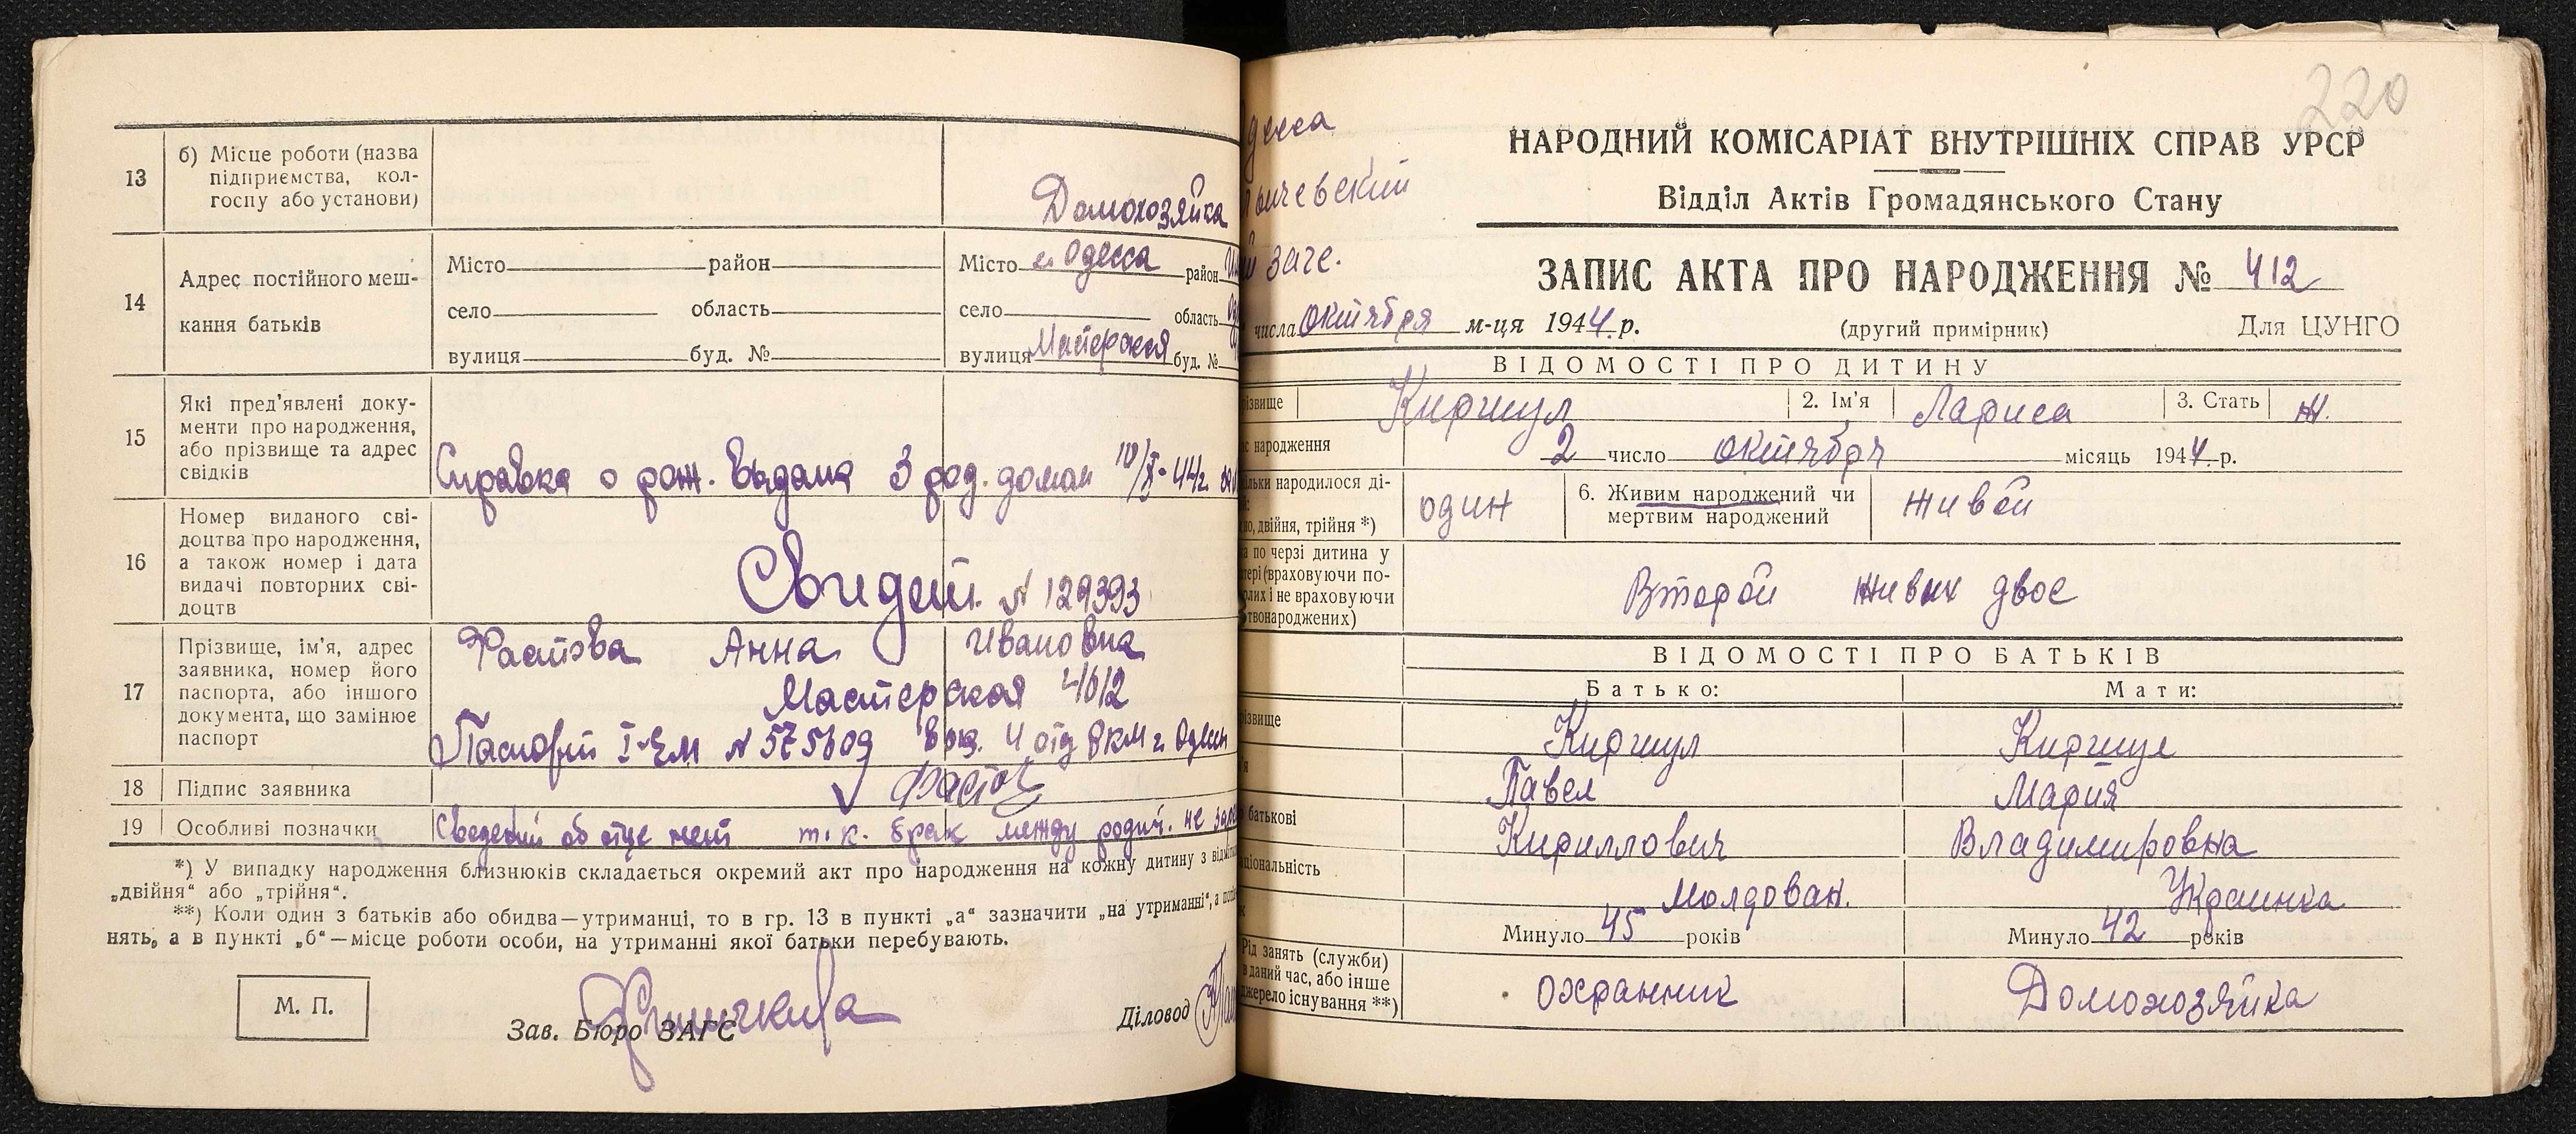 13
б) Місце роботи (назва
підприємства, кол-
госпу або установи)
Домохозяйка
14
Адрес постійного меш-
кання батьків
Місто район
село область
вулиця буд. №
Місто г. Одесса район
село область
вулиця Мастерская буд. №
15
Які пред'явлені доку-
менти про народження,
або прізвище та адрес
свідків
Справка о рож. выдана 3 род. домом
16
Номер виданого сві-
доцтва про народження,
а також номер і дата
видачі повторних сві-
доцтв
Свидет. № 129393
17
Прізвище, ім'я, адрес
заявника, номер його
паспорта, або іншого
документа, що замінює
паспорт
Анна Ивановна
Мастерская
Паспорт № 575609 4 отд г. Одессы
18
Підпис заявника
19
Особливі позначки
Сведений об отце нет т. к. брак между родит. не
*) У випадку народження близнюків складається окремий акт про народження на кожну дитину з
„двійня“ або „трійня“.
**) Коли один з батьків або обидва—утриманці, то в гр. 13 в пункті „а“ зазначити „на утриманні“, а
нять, а в пункті „б“—місце роботи особи, на утриманні якої батьки перебувають.
М. П.
Зав. Бюро ЗАГС
Діловод
220
десса
ичевский
загс.
НАРОДНИЙ КОМІСАРІАТ ВНУТРІШНІХ СПРАВ УРСР
Відділ Актів Громадянського Стану
ЗАПИС АКТА ПРО НАРОДЖЕННЯ № 412
числа октября м-ця 1944 р. (другий примірник) Для ЦУНГО
ВІДОМОСТІ ПРО ДИТИНУ
ізвище Киршул 2. Ім'я Лариса 3. Стать Ж.
с народження 2 число октября місяць 1944 р.
льки народилося ді-
но, двійня, трійня *)
один
6. Живим народжений чи
мертвим народжений
живой
а по черзі дитина у
тері (враховуючи по-
лих і не враховуючи
твонароджених)
Второй живых двое
ВІДОМОСТІ ПРО БАТЬКІВ
Батько: Мати:
ізвище Киршул Киршул
я Павел Мария
батькові Кириллович Владимировна
ціональність Молдован. Украинка
Минуло 45 років Минуло 42 років
Рід занять (служби)
в даний час, або інше
джерело існування **)
охранник Домохозяйка